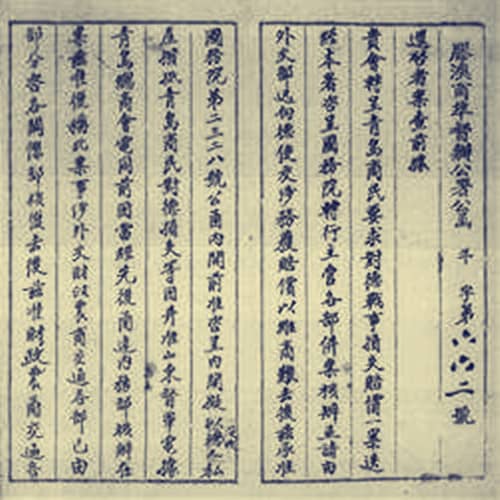 膠澳商埠督辦公署公函 字第六六二號
逕啟者案查前據
貴會轉呈青島商民要求對德戰事損失賠償一案迭
經本署咨呈國務院轉行主管各部併案核辦並請由
外交部逕向德使交涉務獲賠償以維商艱去後茲承准
國務院第二三二八號公函內開前准咨呈內開
應損失青島商民對德損失等因并准山東督軍電據
青島總商會電同前因當經先後函達內務部核辦在
案茲准復稱此案事涉外交財政農商交通各部已由
部分咨各關係部核復去後茲准財政農商交通咨